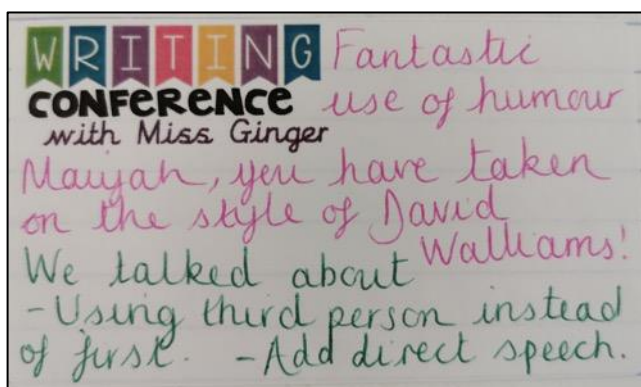 WRITING
CONFERENCE
with Miss Ginger
Fantastic
use of humour
Maiyah, you have taken
on the style of David
Walliams!
We talked about
-Using third person instead
of first. -Add direct speech.